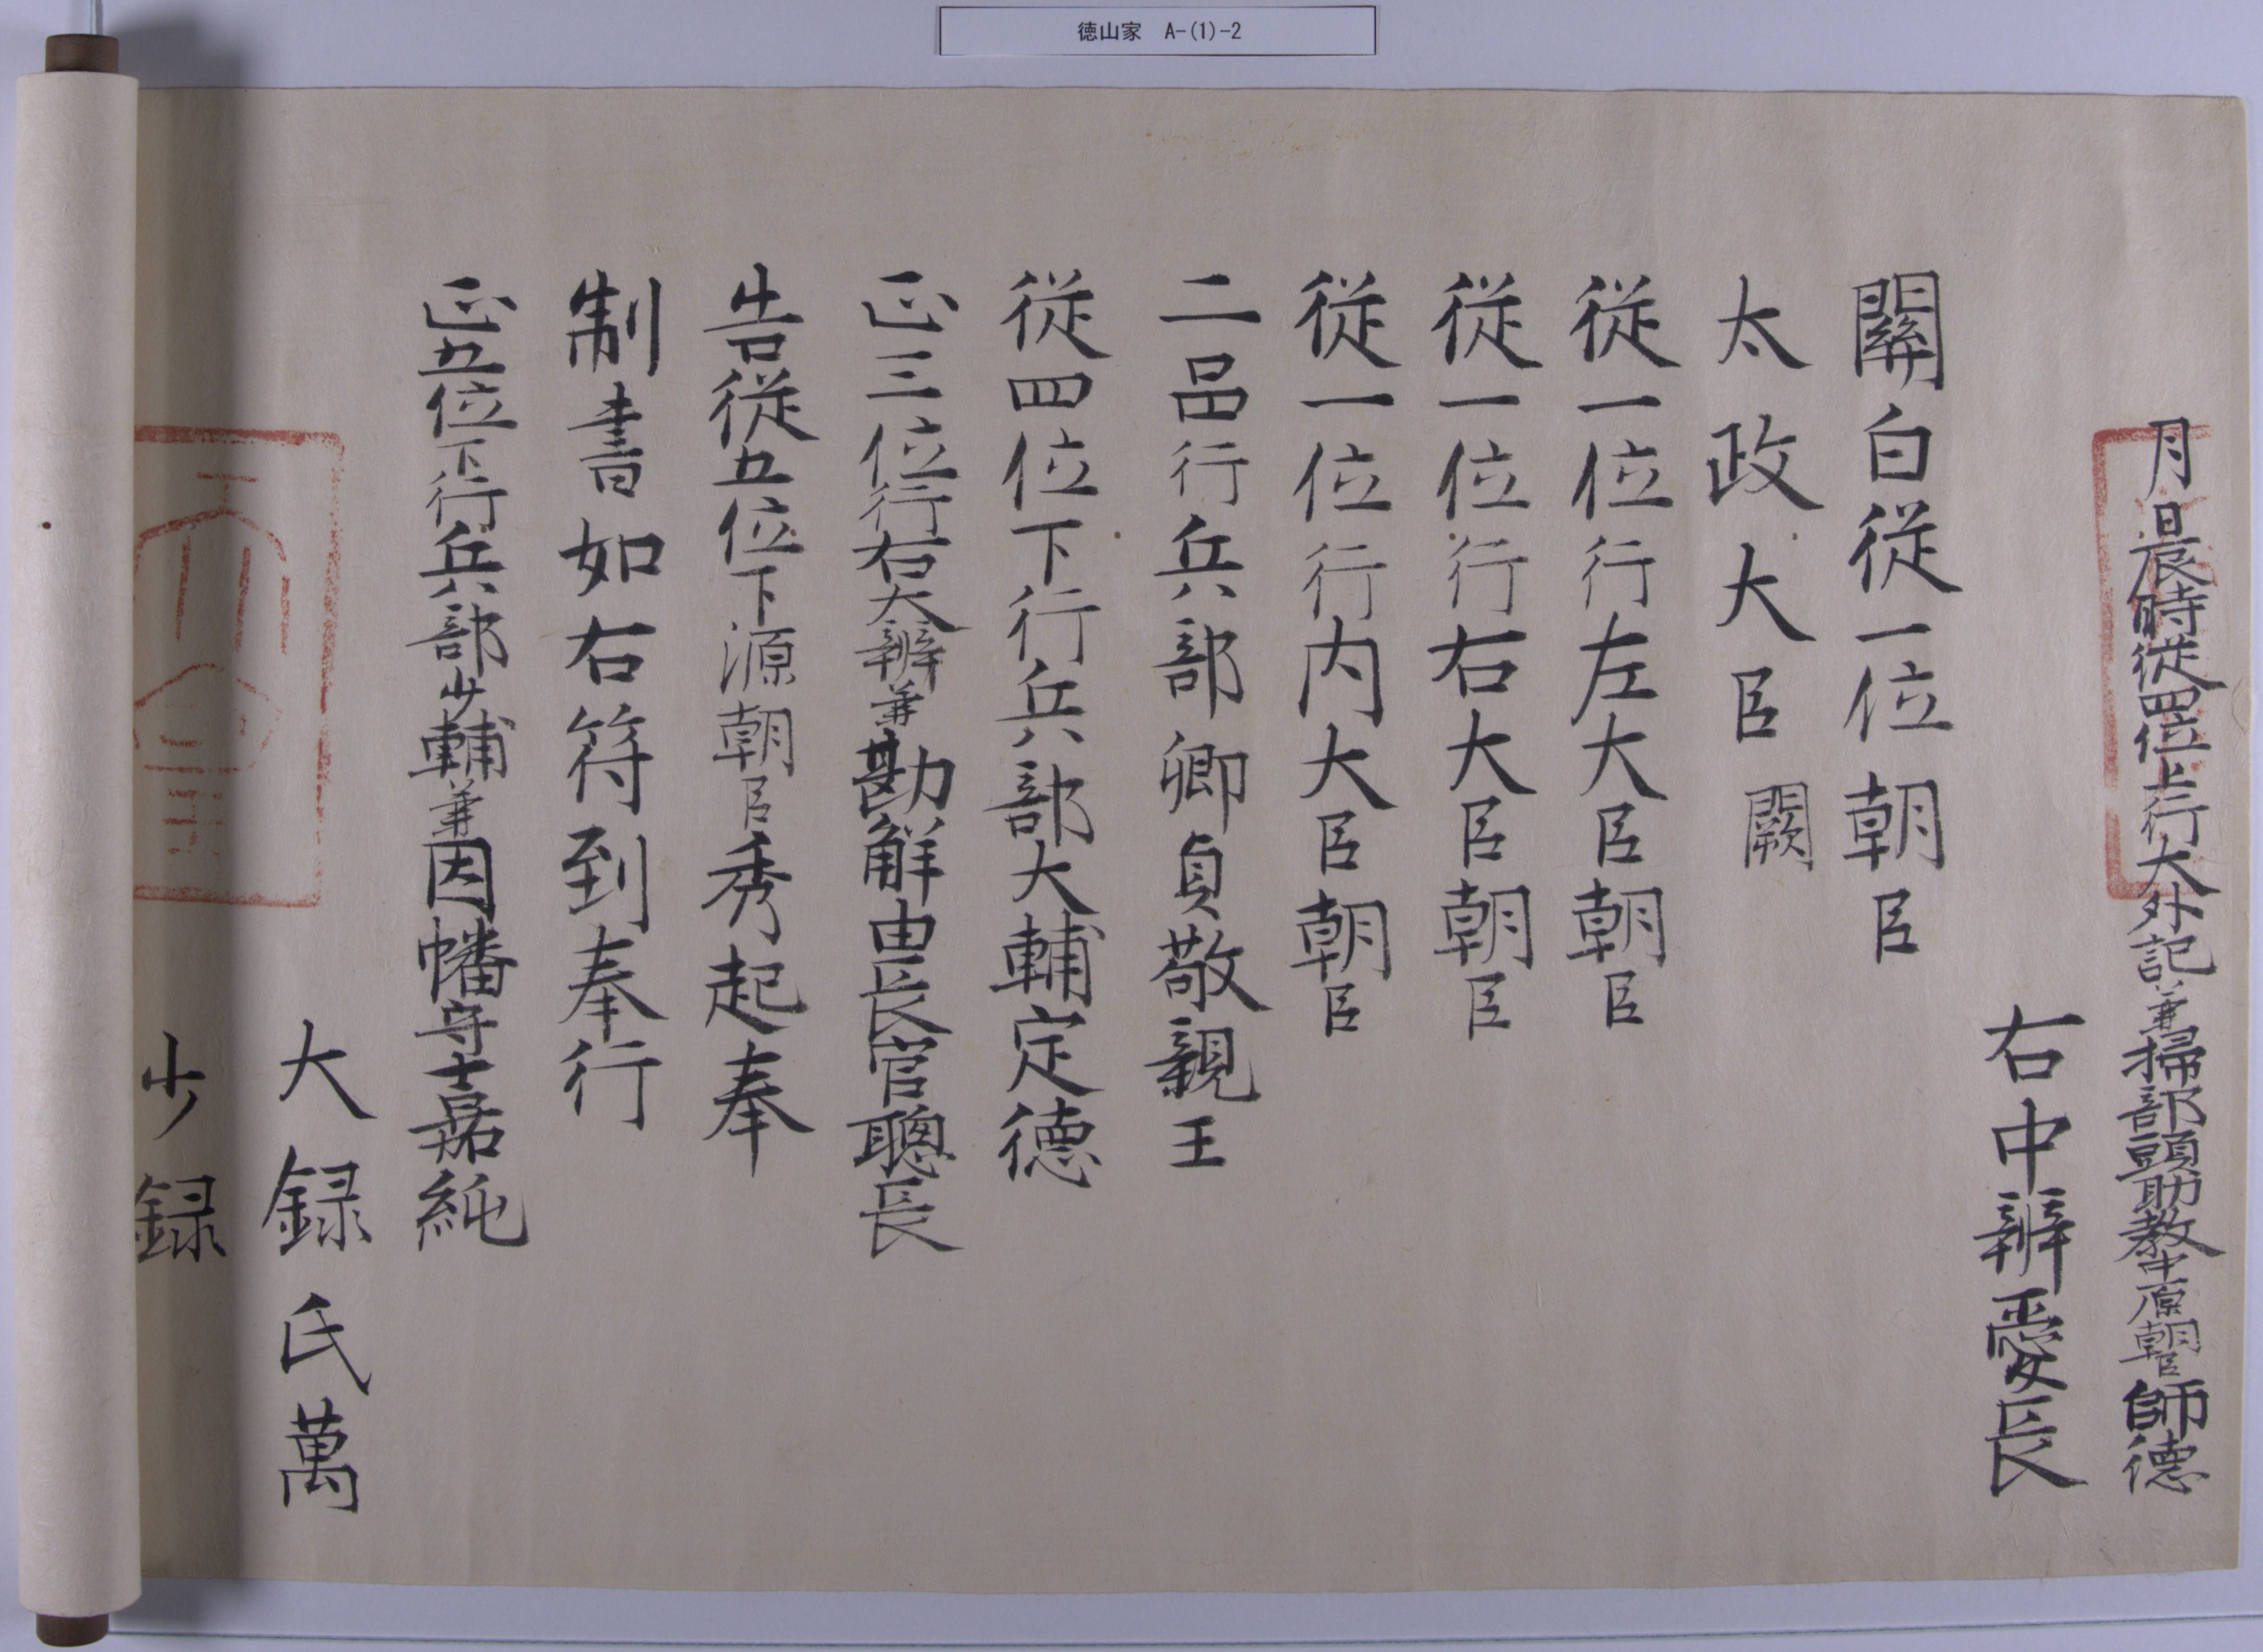 徳山家 A-(1)-2
月日晨時従四位上行大外記兼掃部頭助教中原朝臣師徳
右中辨愛長
關白従一位朝臣
太政大臣闕
従一位行左大臣朝臣
従一位行右大臣朝臣
従一位行内大臣朝臣
二品行兵部卿貞敬親王
従四位下行兵部大輔定徳
正三位行右大辨兼勘解由長官聰長
告従五位下源朝臣秀起奉
制書如右符到奉行
正五位下行兵部少輔兼因幡守士嘉純
大録氏萬
少録